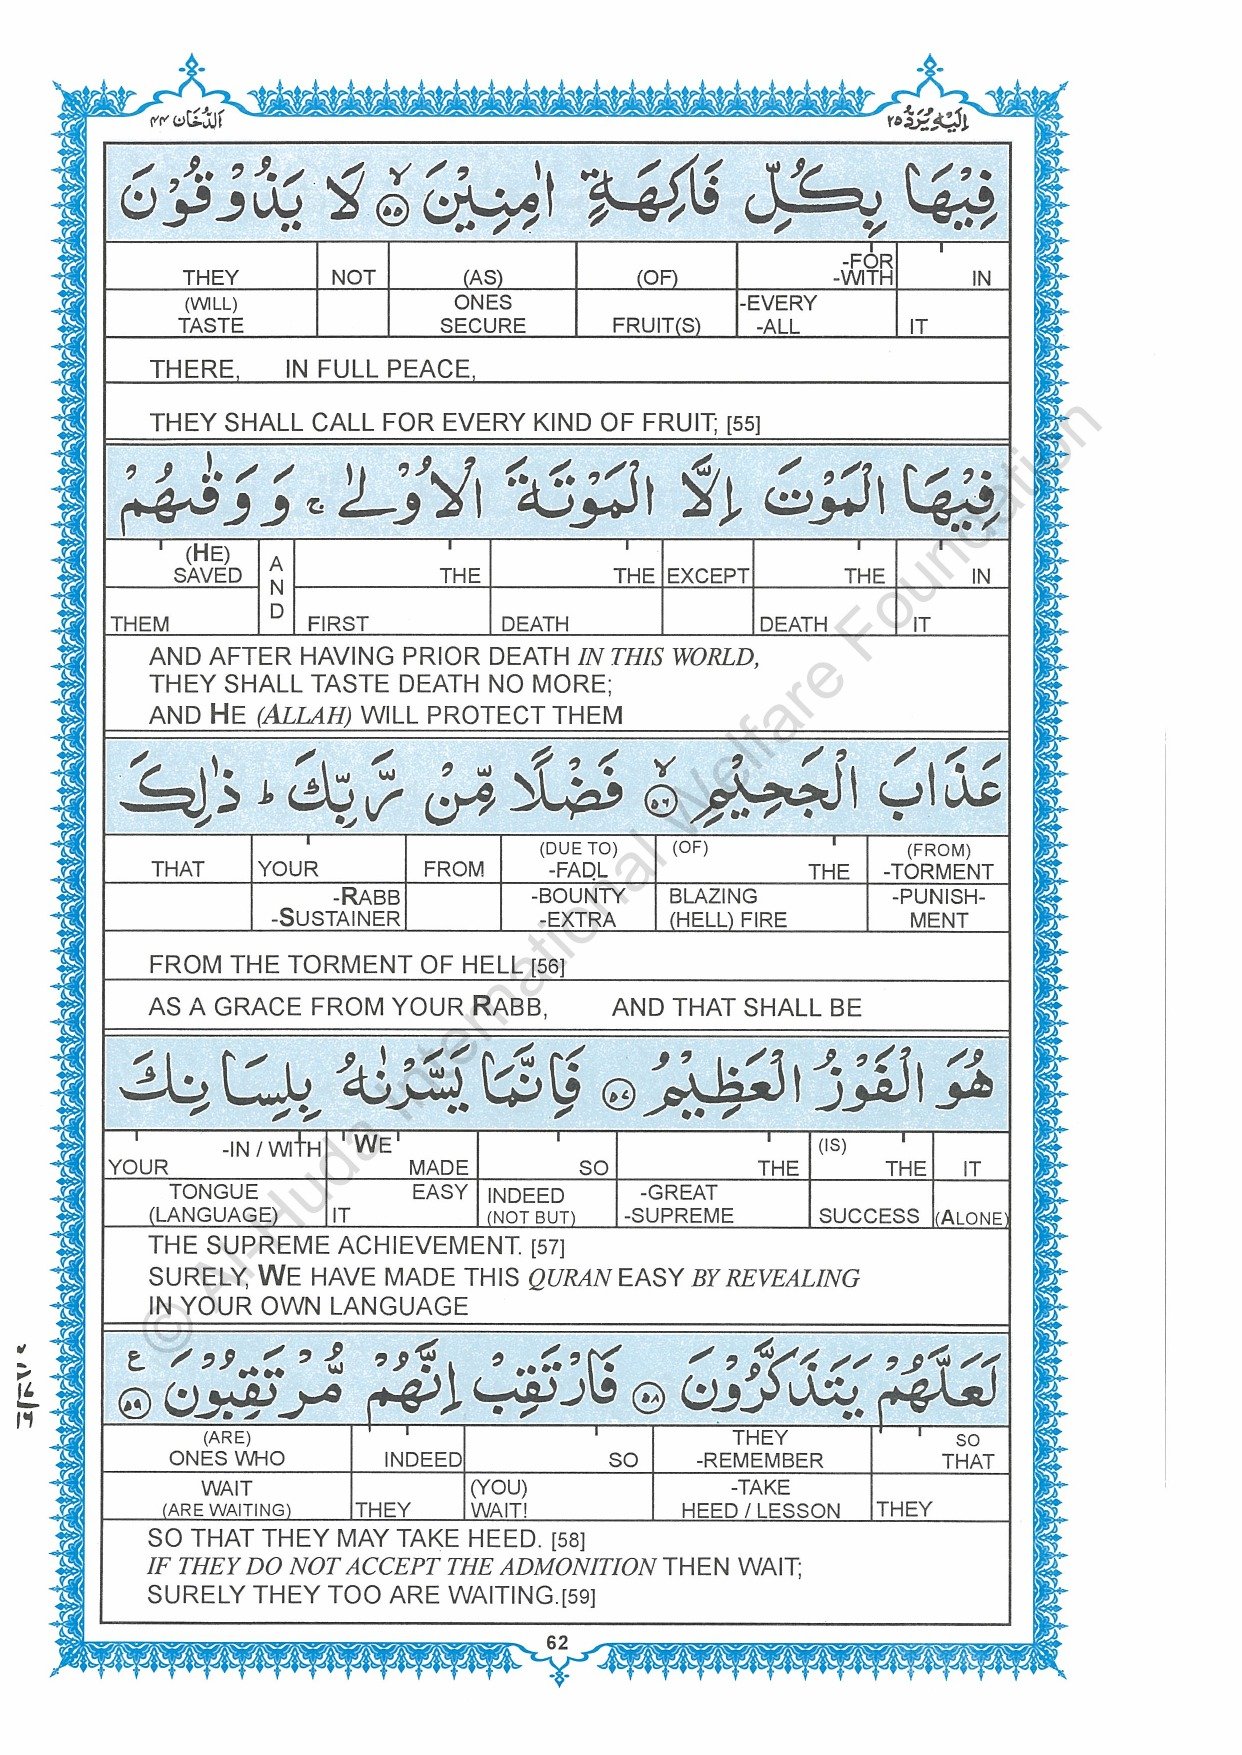 الدُّخَان ٤٤
اِلَيْهِ يُرَدُّ ٢٥
فِيْهَا بِكُلِّ فَاكِهَةٍ اٰمِنِيْنَ ۙ ﴿٥٥﴾ لَا يَذُوْقُوْنَ
THEY NOT (AS) (OF) -FOR -WITH IN
(WILL) TASTE ONES SECURE FRUIT(S) -EVERY -ALL IT
THERE, IN FULL PEACE,
THEY SHALL CALL FOR EVERY KIND OF FRUIT; [55]
فِيْهَا الْمَوْتَ اِلَّا الْمَوْتَةَ الْاُوْلٰى ۚ وَ وَقٰىهُمْ
(HE) SAVED AND THE THE EXCEPT THE IN
THEM FIRST DEATH DEATH IT
AND AFTER HAVING PRIOR DEATH IN THIS WORLD,
THEY SHALL TASTE DEATH NO MORE;
AND HE (ALLAH) WILL PROTECT THEM
عَذَابَ الْجَحِيْمِ ۙ ﴿٥٦﴾ فَضْلًا مِّنْ رَّبِّكَ ؕ ذٰلِكَ
THAT YOUR FROM (DUE TO) -FADL (OF) THE (FROM) -TORMENT
-RABB -SUSTAINER -BOUNTY -EXTRA BLAZING (HELL) FIRE -PUNISH- MENT
FROM THE TORMENT OF HELL [56]
AS A GRACE FROM YOUR RABB, AND THAT SHALL BE
هُوَ الْفَوْزُ الْعَظِيْمُ ﴿٥٧﴾ فَاِنَّمَا يَسَّرْنٰهُ بِلِسَانِكَ
YOUR -IN / WITH WE MADE SO THE (IS) THE IT
TONGUE (LANGUAGE) EASY IT INDEED (NOT BUT) -GREAT -SUPREME SUCCESS (ALONE)
THE SUPREME ACHIEVEMENT. [57]
SURELY, WE HAVE MADE THIS QURAN EASY BY REVEALING
IN YOUR OWN LANGUAGE
لَعَلَّهُمْ يَتَذَكَّرُوْنَ ﴿٥٨﴾ فَارْتَقِبْ اِنَّهُمْ مُّرْتَقِبُوْنَ ﴿٥٩﴾ ع
(ARE) ONES WHO INDEED SO THEY -REMEMBER SO THAT
WAIT (ARE WAITING) THEY (YOU) WAIT! -TAKE HEED / LESSON THEY
SO THAT THEY MAY TAKE HEED. [58]
IF THEY DO NOT ACCEPT THE ADMONITION THEN WAIT;
SURELY THEY TOO ARE WAITING.[59]
62
© Al-Huda International Welfare Foundation